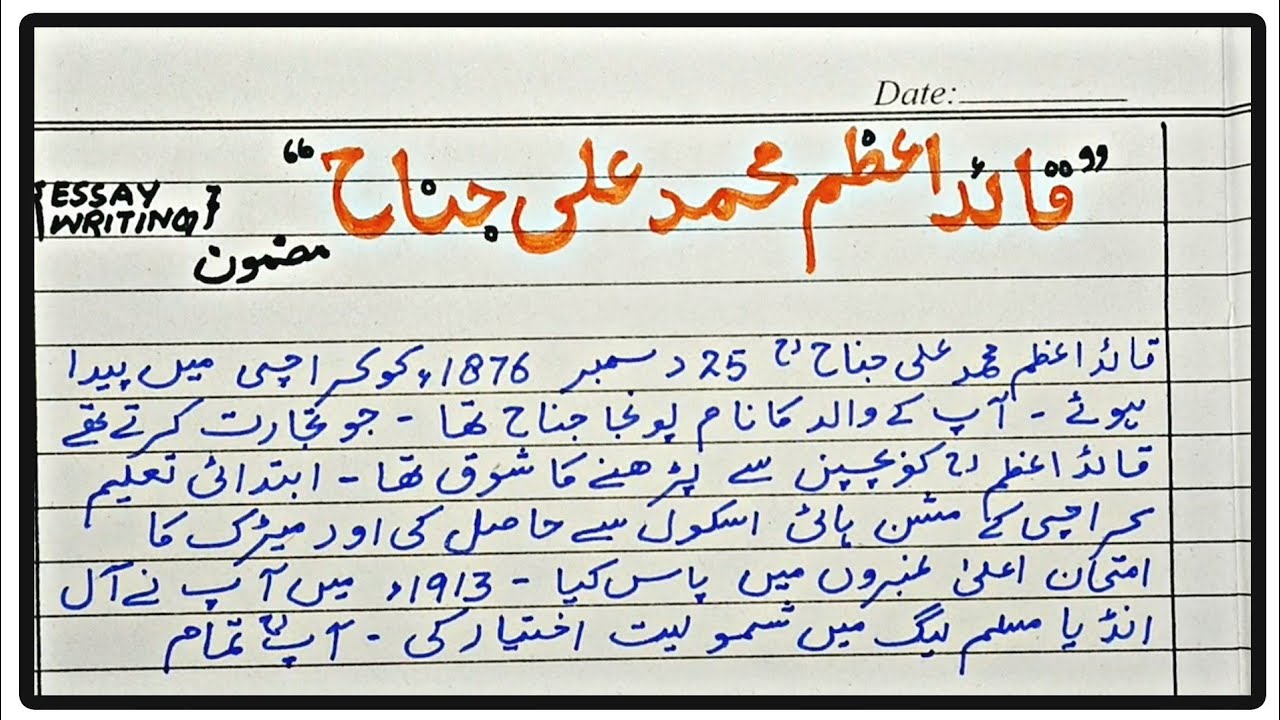 Date:
”قائد اعظم محمد علی جناح“
{ESSAY WRITING}
مضمون
قائد اعظم محمد علی جناحؒ 25 دسمبر 1876ء کو کراچی میں پیدا
ہوئے - آپ کے والد کا نام پونجا جناح تھا - جو تجارت کرتے تھے
قائد اعظمؒ کو بچپن سے پڑھنے کا شوق تھا - ابتدائی تعلیم
کراچی کے مشن ہائی اسکول سے حاصل کی اور میٹرک کا
امتحان اعلیٰ نمبروں میں پاس کیا - 1913ء میں آپ نے آل
انڈیا مسلم لیگ میں شمولیت اختیار کی - آپؒ تمام